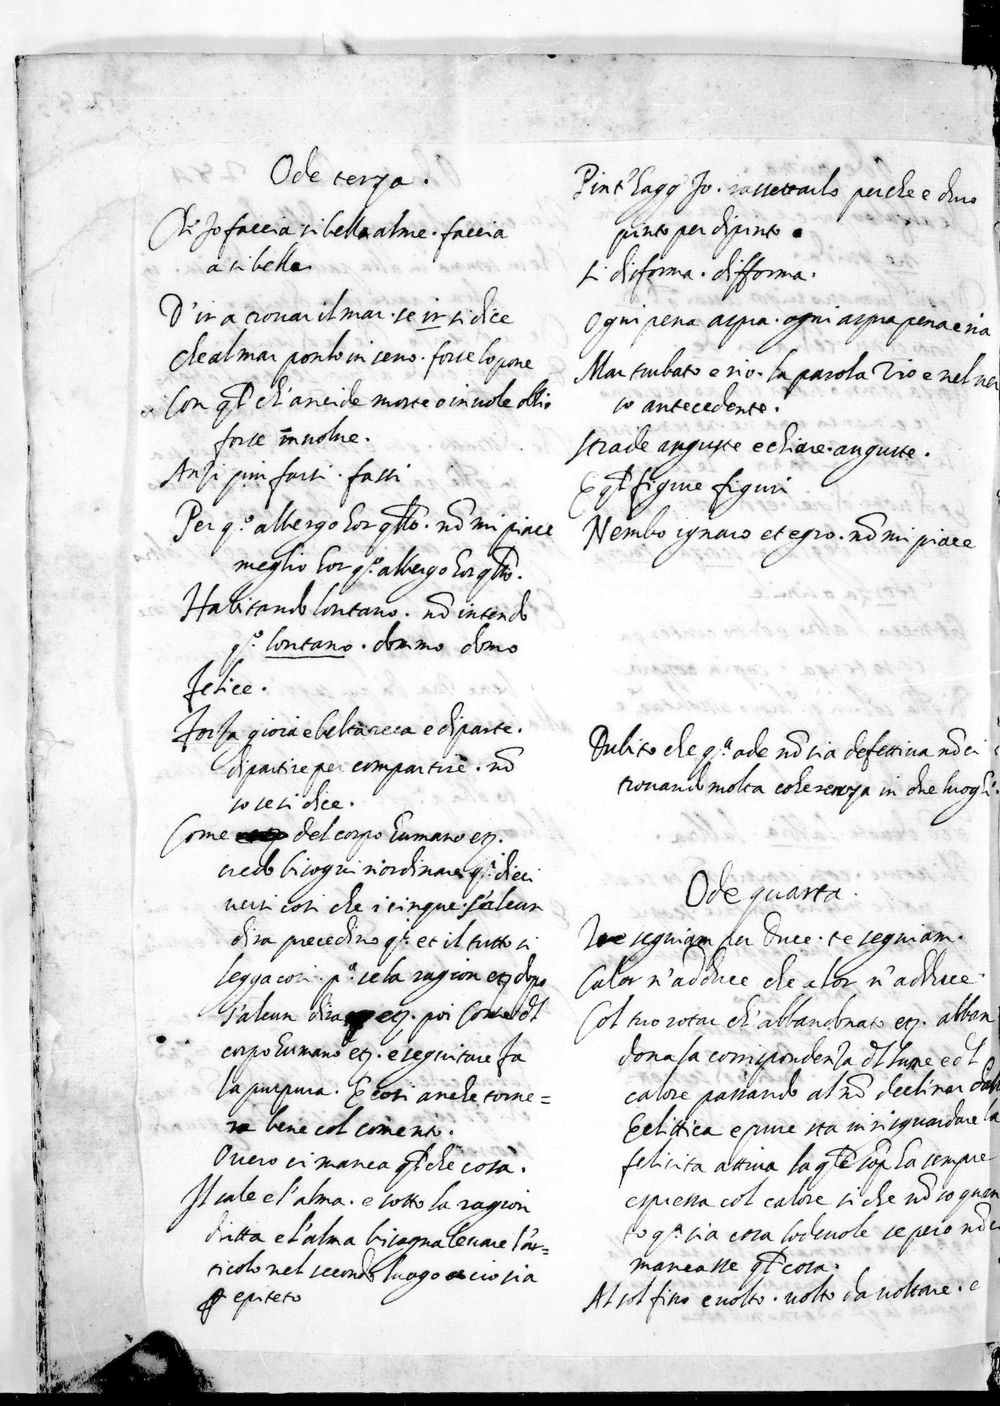 Ode terza.
Ch'Io faccia si bella alme. faccia
a si bella
D'ir a trouar il mar. se ir si dice
che al mar ponlo in seno. forse lo pone
Con q̃l ch'ancide morte o inuole oblio
forse inuolue.
Anzi pim farsi. fassi
Per q.o albergo hor q̃llo. nõ mi piace
meglio hor q.o albergo hor q̃llo.
Habitando lontano. nõ intendo
q.o lontano. dommo domo
felice.
forza gioia e beltà reca e diparte.
dipartire per compartire. nõ
so se si dice.
Come del corpo humano etc.
credo bisogni riordinare q.i dieci
uersi cosi che i cinque. s'alcun
dira precedino q.i et il tutto si
legga cosi. p.a se la ragion etc dopo
s'alcun dira etc. poi Come dl
corpo humano etc. e seguitare fa
la purpura. E cosi anche torne=
ra bene col comento.
Ouero ci manca q̃lche cosa.
Il sale e l'alma. e sotto la ragion
dritta e l'alma bisogna leuare l'ar=
ticolo nel secondo luogo o cio sia
epiteto
Pint' hagg' Io. rassettarlo perche e duro
pinto per dipinto
si disforma. difforma.
Ogni pena aspra. ogni aspra pena e ria
Mar turbato e rio. la parola rio e nel ver
so antecedente.
strade anguste e chiare. anguste.
E q̃l figure figuri
Nembo ignaro et egro. nõ mi piace
Dubito che q.a ode nõ sia defettiua nõ ci
trouando molta coherenza in due luoghi.
Ode quarta.
seguiam per Duce. te seguiam.
Calor n'adduce che alor n'adduce.
Col tuo rotar ch'abbandonato etc. abban
dona la corrispondenza dl lume e dl
calore passando al nõ declinar dalla
Eclittica e pure sta in risguardare la
felicita attiua la q̃le sop̃ ha sempre
espressa col calore si che nõ so quan
to q.a sia cosa lodeuole se pero nõ ci
mancasse q̃l cosa.
Al sol fiso e uolto. uolto da uoltare. e